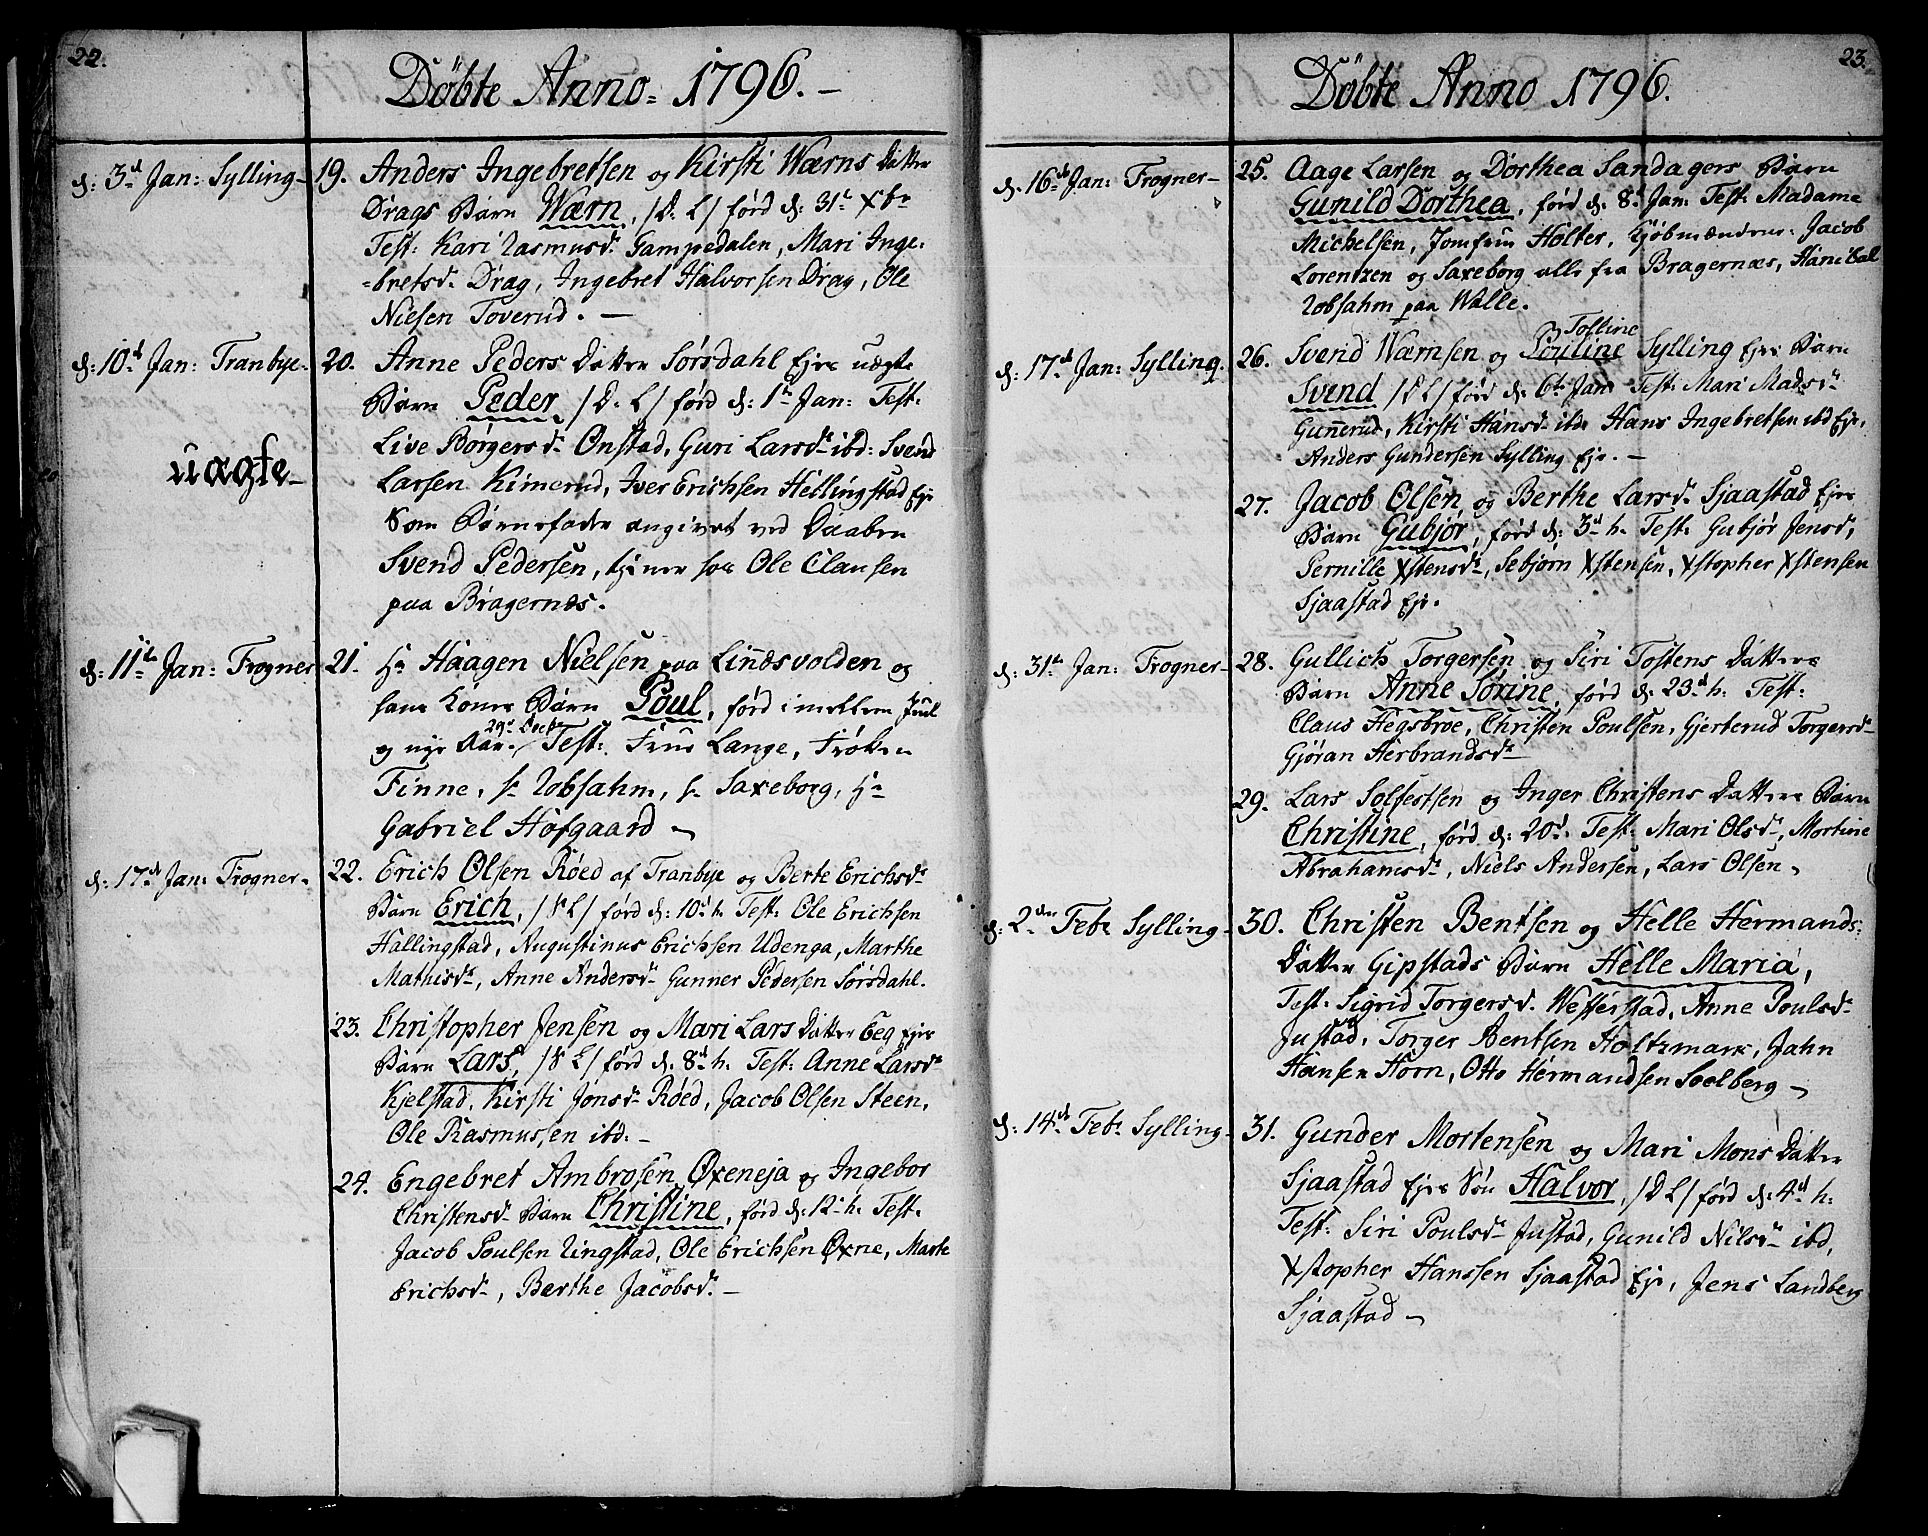 22.
Döbte Anno 1796. –
d: 3d Jan: Sylling – 19. Anders Ingebretsen og Kirsti Wærns Datter
Drags Barn Wærn, /D. L/ förd d: 31t Xbr
Test: Kari Rasmusd. Gampedalen, Mari Inge-
bretsd. Drag, Ingebret Halvorsen Drag, Ole
Nielsen Toverud. –
d: 10d Jan: Tranbye. 20. Anne Peders Datter Sörsdahl Ejes uægte
uægte –
Barn Peder, /D. L/ förd d: 1te Jan: Test:
Live Börgersd. Onstad, Guri Larsd. ibd: Svend
Larsen Kimerud, Iver Erichsen Hellingstad Eje
Som Barnefader angivet ved Daaben
Svend Pedersen, tjener hos Ole Clausen
paa Bragernæs.
d: 11te Jan: Frogner 21. Hr Haagen Nielsen paa Linnæsvolden og
hans Kones Barn Poul, förd imellem Juul
og nye Aar. 29d Decbr Test: Frue Lange, Fröken
Finne, hr Robsahm, hr Saxeborg, Hr
Gabriel Hofgaard –
d: 17d Jan: Frogner. 22. Erich Olsen Röed af Tranbye og Berte Erichsd.
Barn Erich, /D L/ förd d: 10d h. Test: Ole Erichsen
Hallingstad, Augustinus Erichsen Udenga, Marthe
Mathisd., Anne Andersd. Gunner Pedersen Sörsdahl.
23. Christopher Jensen og Mari Lars Datter Eeg Ejes
Barn Lars, /D L/ förd d: 8d h. Test: Anne Larsd.
Kjelstad, Kirsti Jonsd. Röed, Jacob Olsen Steen,
Ole Rasmussen ibd: –
24. Engebret Ambrosen Oxeneja og Ingebor
Christensd. Barn Christine, förd d: 12 h. Test:
Jacob Poulsen Ringstad, Ole Erichsen Oxne, Marte
Erichsd., Bærthe Jacobsd. –
23.
Döbte Anno 1796.
d. 16d Jan: Frogner – 25. Aage Larsen og Dorthea Sandagers Barn
Gunild Dorthea, förd d: 8d Jan: Test: Madame
Michelsen, Jomfrue Holter, Kjöbmændene: Jacob
Lorentzen og Saxeborg alle fra Bragernæs, Hanibal
Robsahm paa Walle.
Tolline
d: 17d Jan: Sylling. 26. Svend Wærnsen og Pouline Sylling Ejes Barn
Svend /D L/ förd d: 6te Jan Test: Mari Madsd.
Gunnerud, Kirsti Hansd. ibd: Hans Ingebretsen ibd Eje,
Anders Gundersen Sylling Eje. –
27. Jacob Olsen, og Berthe Larsd. Sjaastad Ejes
Barn Gubjör, förd d: 3d h. Test: Gubjör Jensd,
Pernille Xstensd., Sebjörn Xstensen, Xstopher Xstensen
Sjaastad Eje.
d: 31t Jan: Frogner – 28. Gullich Torgersen og Siri Tostens Datters
Barn Anne Sörine, förd d: 23d h. Test:
Claus Hegsbroe, Christen Poulsen, Gjerterud Torgersd.
Gjöran Herbrandsd.
29. Lars Solfestsen og Inger Christens Datters Barn
Christine, förd d: 20d. Test: Mari Olsd., Mortine
Abrahamsd., Niels Andersen, Lars Olsen.
d: 2den Febr Sylling – 30. Christen Bentsen og Helle Hermands
Datter Gipstads Barn Helle Maria,
Test: Sigrid Torgersd. Westerstad, Anne Poulsd.
Justad, Torger Bentsen Holtzmark, Jahn
Hansen Horn, Otto Hermandsen Soelberg –
d: 14d Febr Sylling – 31. Gunder Mortensen og Mari Mons Datter
Sjaastad Ejes Sön Halvor, /D L/ förd d: 4d h.
Test: Siri Poulsd. Justad, Gunild Nilsd. ibd,
Xstopher Hanssen Sjaastad Eje, Jens Landberg
Sjaastad –